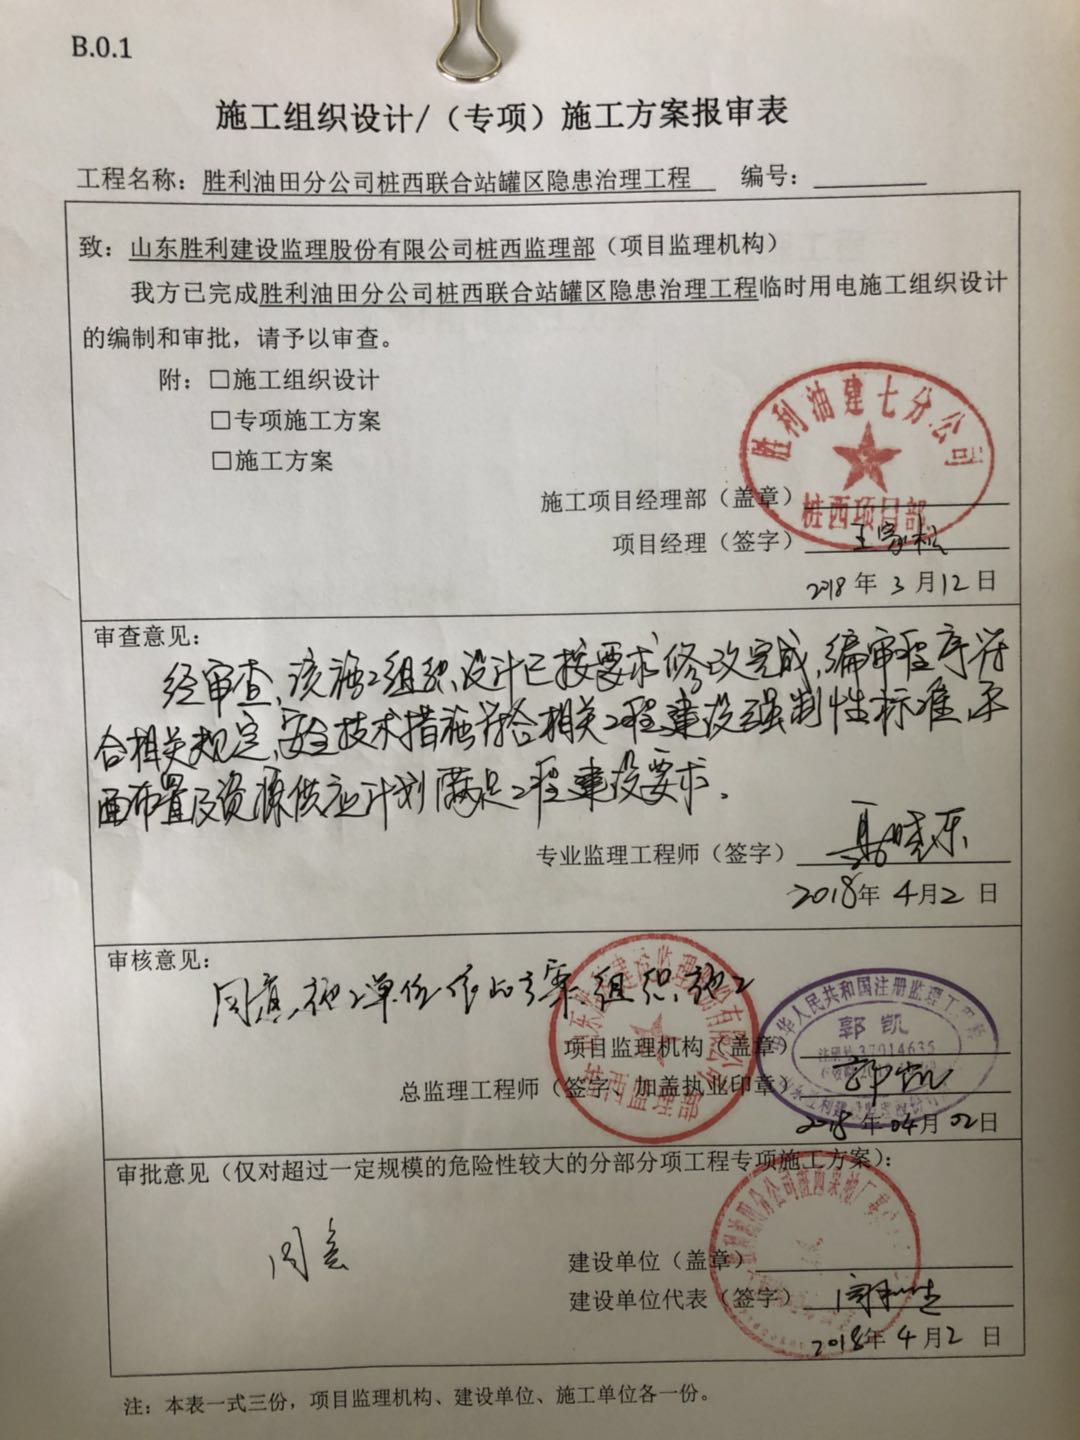 B.0.1
施工组织设计/（专项）施工方案报审表
工程名称：胜利油田分公司桩西联合站罐区隐患治理工程 编号：
致：山东胜利建设监理股份有限公司桩西监理部（项目监理机构）
我方已完成胜利油田分公司桩西联合站罐区隐患治理工程临时用电施工组织设计
的编制和审批，请予以审查。
附：□施工组织设计
□专项施工方案
□施工方案
胜利油建七分公司
桩西项目部
施工项目经理部（盖章）
项目经理（签字）王家松
2018年3月12日
审查意见：
经审查，该施工组织设计已按要求修改完成，编审程序符
合相关规定，安全技术措施符合相关工程建设强制性标准，平
面布置及资源供应计划满足工程建设要求。
专业监理工程师（签字）晓东
2018年4月2日
审核意见：
同意施工单位依此方案组织施工
中华人民共和国注册监理工程师
郭凯
注册号37014635
项目监理机构（盖章）
总监理工程师（签字、加盖执业印章）郭凯
2018年04月02日
审批意见（仅对超过一定规模的危险性较大的分部分项工程专项施工方案）：
同意
建设单位（盖章）
建设单位代表（签字）
2018年4月2日
注：本表一式三份，项目监理机构、建设单位、施工单位各一份。